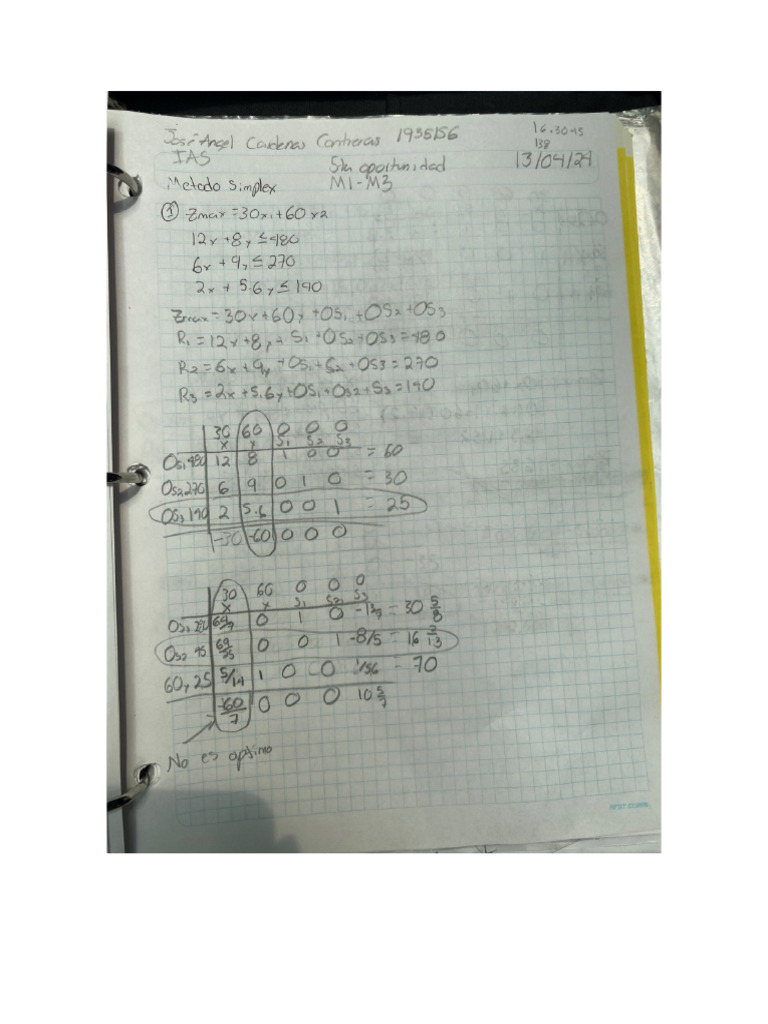 José Angel Cardenas Contreras 1935156
16:30-45
138
IAS
5ta oportunidad
13/04/24
Metodo Simplex
M1-M3
① Zmax=30x1+60x2
12x+8y≤480
6x+9y≤270
2x+5.6y≤140
Zmax=30x+60y+0S1+0S2+0S3
R1=12x+8y+S1+0S2+0S3=480
R2=6x+9y+0S1+S2+0S3=270
R3=2x+5.6y+0S1+0S2+S3=140
30 60 0 0 0
x y S1 S2 S3
0S1 480 12 8 1 0 0 = 60
0S2 270 6 9 0 1 0 = 30
0S3 140 2 5.6 0 0 1 = 25
-30 -60 0 0 0
30 60 0 0 0
x y S1 S2 S3
0S1 280 64/7 0 1 0 = 30 5/8
0S2 45 0 0 1 -8/5 = 16 2/13
60y 25 5/14 1 0 0 1/56 = 70
-60/7 0 0 0 10 5/7
No es optimo